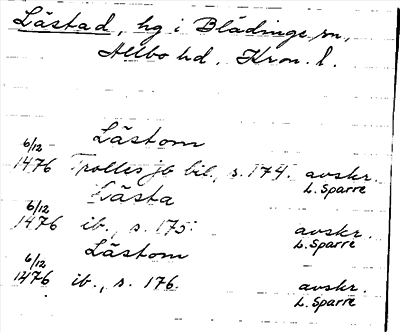 Lästad, hg i Blädinge sn,
Allbo hd, Kron. l.
Lästom
6/12
1476 Trolles jb bil., s. 174. avskr.
L. Sparre
Lästa
6/12
1476 ib., s. 175. avskr.
L. Sparre
Lästom
6/12
1476 ib., s. 176. avskr.
L. Sparre